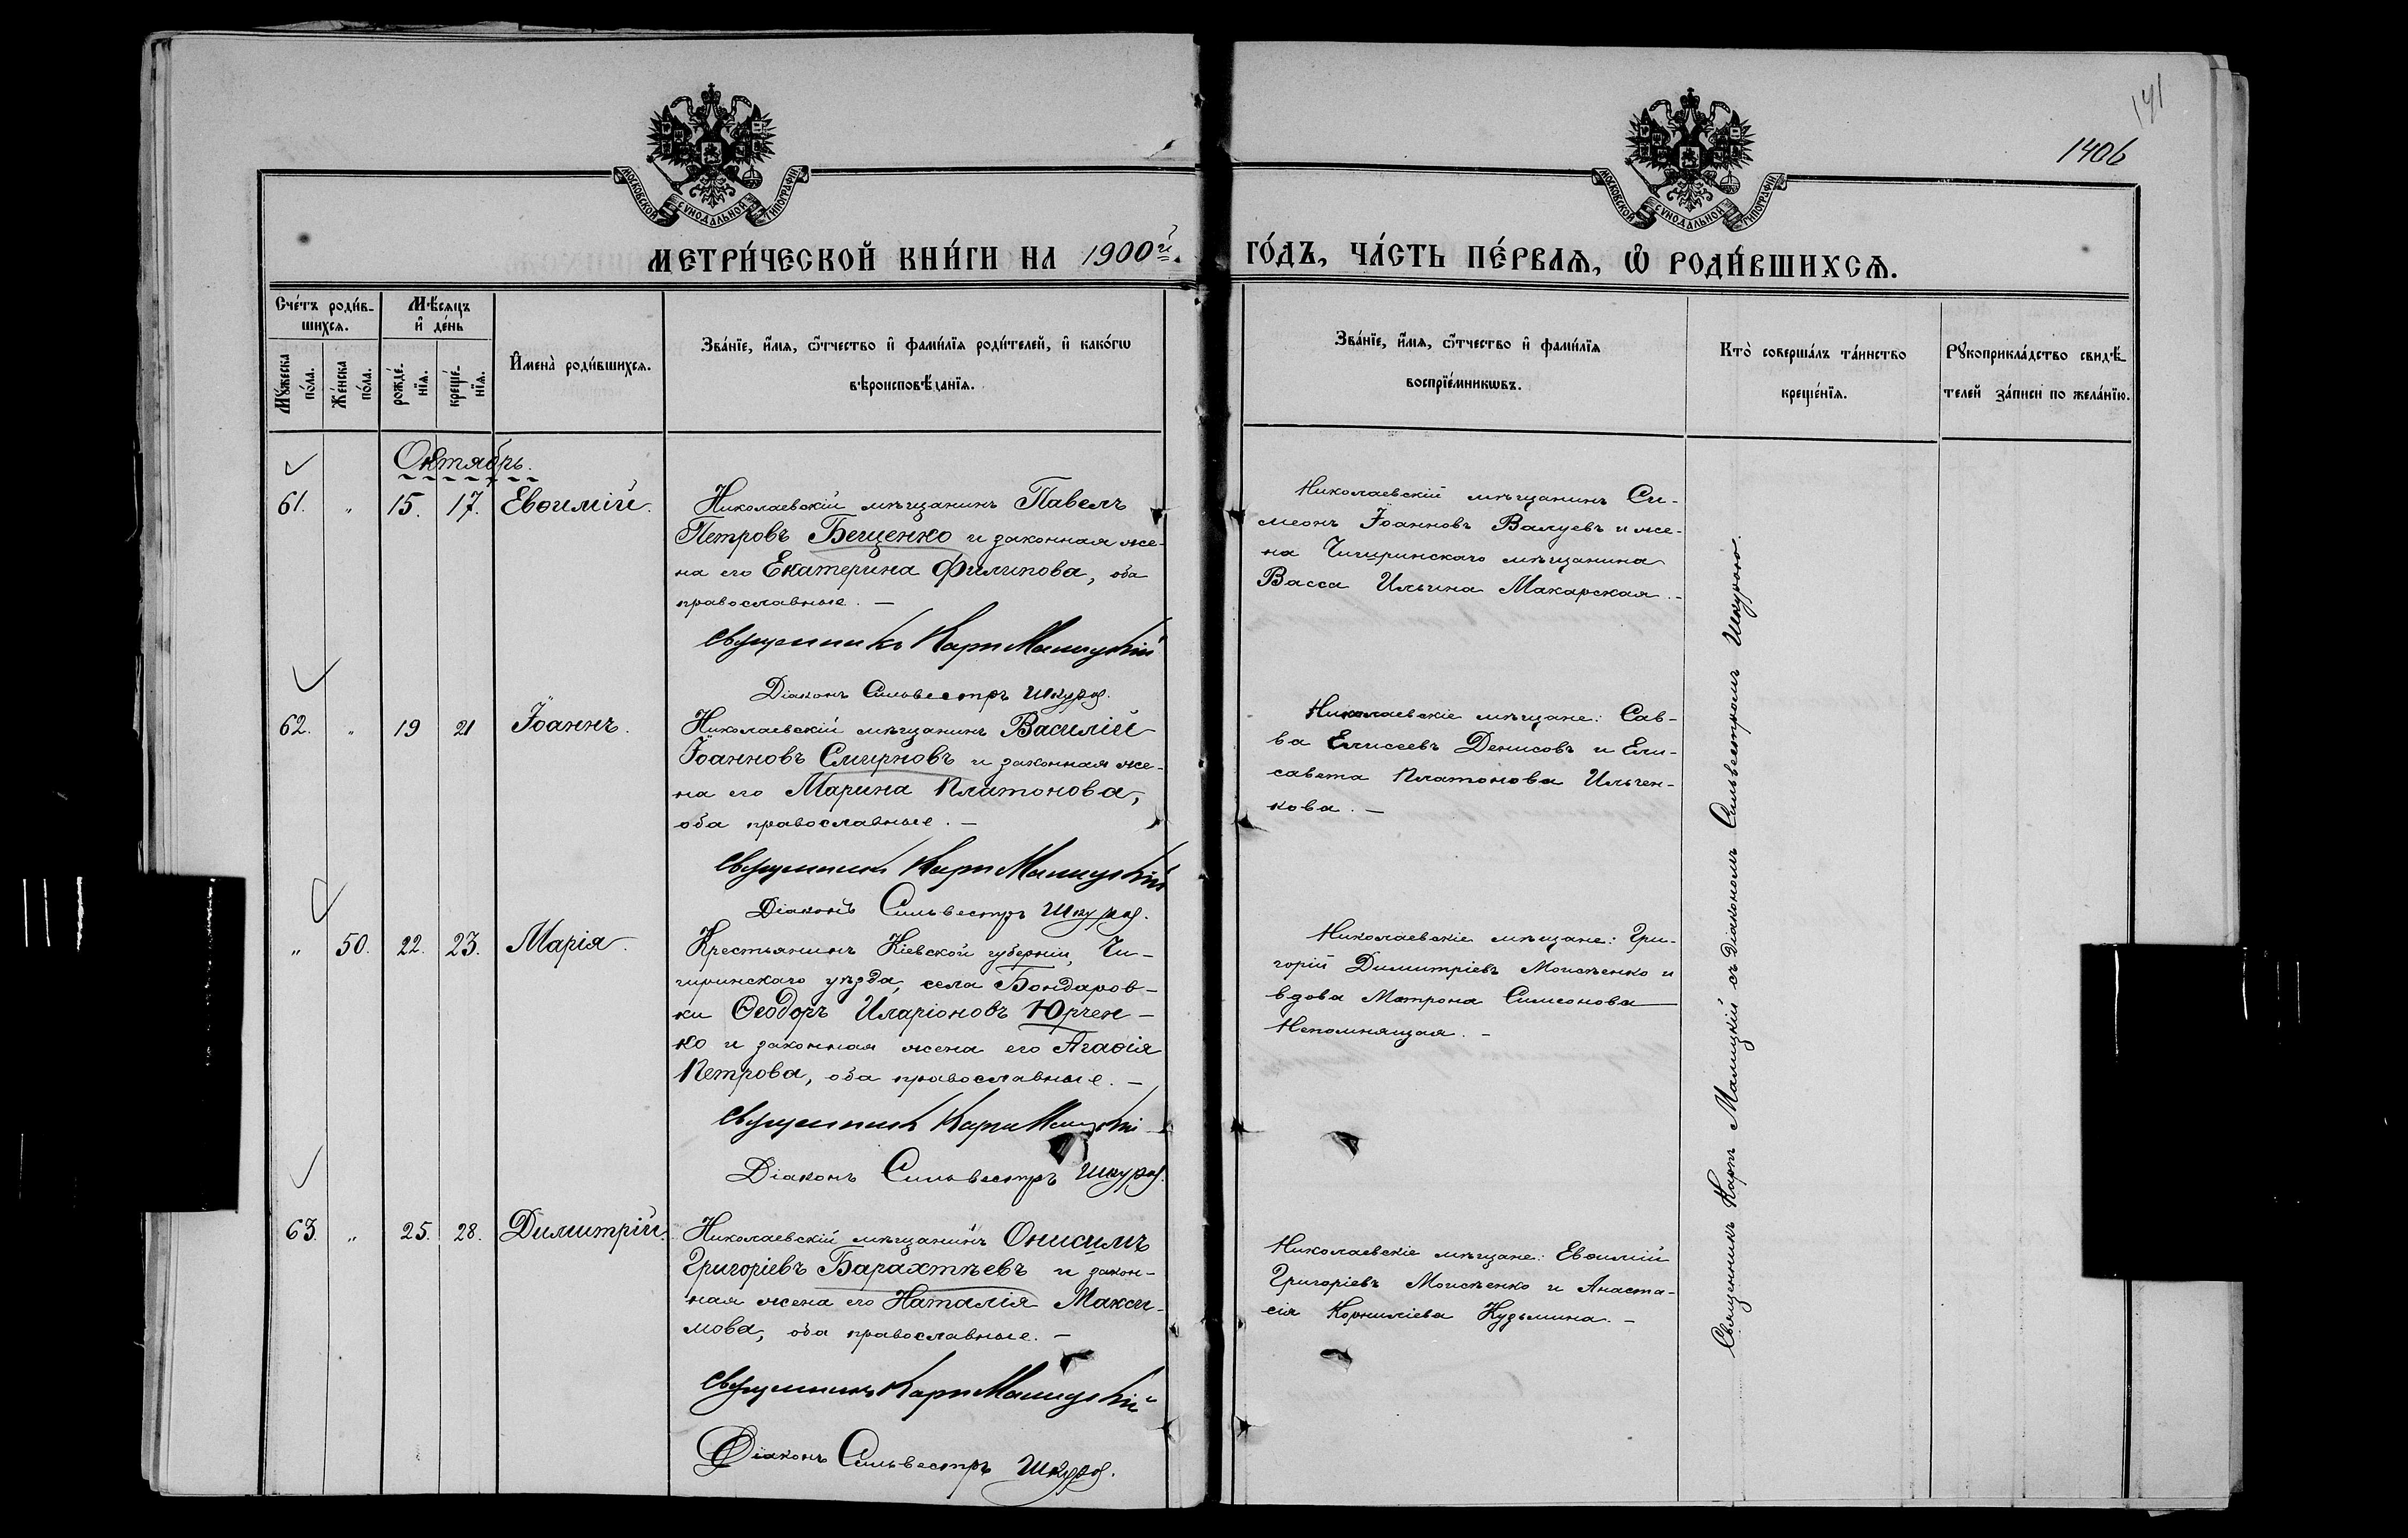 141
1406
МОСКОВСКОЙ СѴНОДАЛЬНОЙ ТИПОГРАФІИ
МОСКОВСКОЙ СѴНОДАЛЬНОЙ ТИПОГРАФІИ
МЕТРИ́ЧЕСКОЙ КНИ́ГИ НА 1900й. ГО́ДЪ, ЧА́СТЬ ПЕ́РВАѦ, Ѽ РОДИ́ВШИХСѦ.
Сче́тъ роди́в-
шихсѧ.
Мꙋ́жеска
по́ла.
Же́нска
по́ла.
Мѣ́сѧцъ
и҆ де́нь
рожде́-
нїѧ.
креще́-
нїѧ.
И҆мена̀ роди́вшихсѧ.
Зва́нїе, и҆́мѧ, ѻ҆́тчество и҆ фами́лїѧ роди́телей, и҆ како́гѡ
вѣроисповѣ́данїѧ.
Зва́нїе, и҆́мѧ, ѻ҆́тчество и҆ фами́лїѧ
воспрїе́мникѡвъ.
Кто̀ соверша́лъ та́инство
креще́нїѧ.
Рꙋкоприкла́дство свидѣ́-
телей за́писи по жела́нїю.
Октябрь.
61. " 15. 17. Евѳимій.
Николаевскій мѣщанинъ Павелъ
Петровъ Бещенко и законная же-
на его Екатерина Филипова, оба
православные. —
Священникъ Карпъ Малицкій
Діаконъ Сильвестръ Шкура.
Николаевскій мѣщанинъ Си-
меонъ Іоанновъ Валуевъ и же-
на Чигиринскаго мѣщанина
Васса Ильина Макарская. -
62. " 19 21 Іоаннъ.
Николаевскій мѣщанинъ Василій
Іоанновъ Смирновъ и законная же-
на его Марина Платонова,
оба православные. —
Священникъ Карпъ Малицкій
Діаконъ Сильвестръ Шкура.
Николаевскіе мѣщане: Сав-
ва Елисеевъ Денисовъ и Ели-
савета Платонова Ильчен-
кова. —
" 50. 22. 23. Марія.
Крестьянинъ Кіевской губерніи, Чи-
гиринскаго уѣзда, села Бондаров-
ки Ѳеодоръ Иларіоновъ Юрчен-
ко и законная жена его Агаѳія
Петрова, оба православные. —
Священникъ Карпъ Малицкій
Діаконъ Сильвестръ Шкура.
Николаевскіе мѣщане: Гри-
горій Димитріевъ Моисѣенко и
вдова Матрона Симеонова
Непомнящая. -
63. " 25. 28. Димитрій.
Николаевскій мѣщанинъ Онисимъ
Григоріевъ Барахтѣевъ и закон-
ная жена его Наталія Макси-
мова, оба православные. —
Священникъ Карпъ Малицкій
Діаконъ Сильвестръ Шкура.
Николаевскіе мѣщане: Евѳимій
Григоріевъ Моисѣенко и Анаста-
сія Корниліева Кузьмина. —
Священникъ Карпъ Малицкій съ діакономъ Сильвестромъ Шкурою.